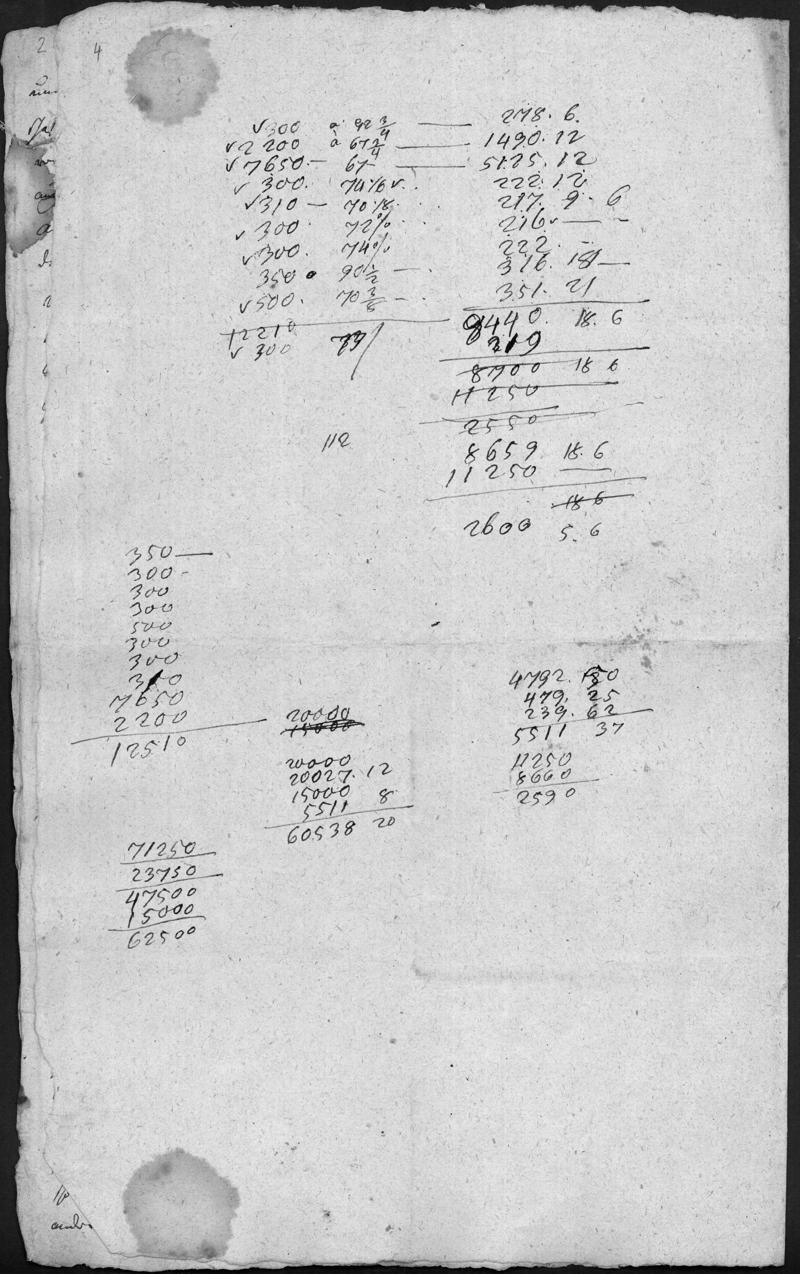 2
4
√300 à 92 3/4 — 278. 6.
√2200 à 67 3/4 — 1490. 12
√7650 — 67 — 5125. 12
√300. 74% 222. 12
√310 — 70 1/8 217. 9. 6
√300. 72% 216 — -
√300. 74% 222. -
350 90 1/2 — 316. 18 —
√500. 70 3/8 — 351. 21
12210 8440. 18. 6
√300 73/ 219
8700 18 6
11250
2550
112
8659 18. 6
11250 —
18 6
2600 5. 6
350 —
300 -
300
300
500
300
300
310
7650
2200
12510
20000
15000
20000
20027. 12
15000
5511 8
60538 20
4792. 50
479. 25
239. 62
5511 37
11250
8660
2590
71250
23750
47500
15000
62500